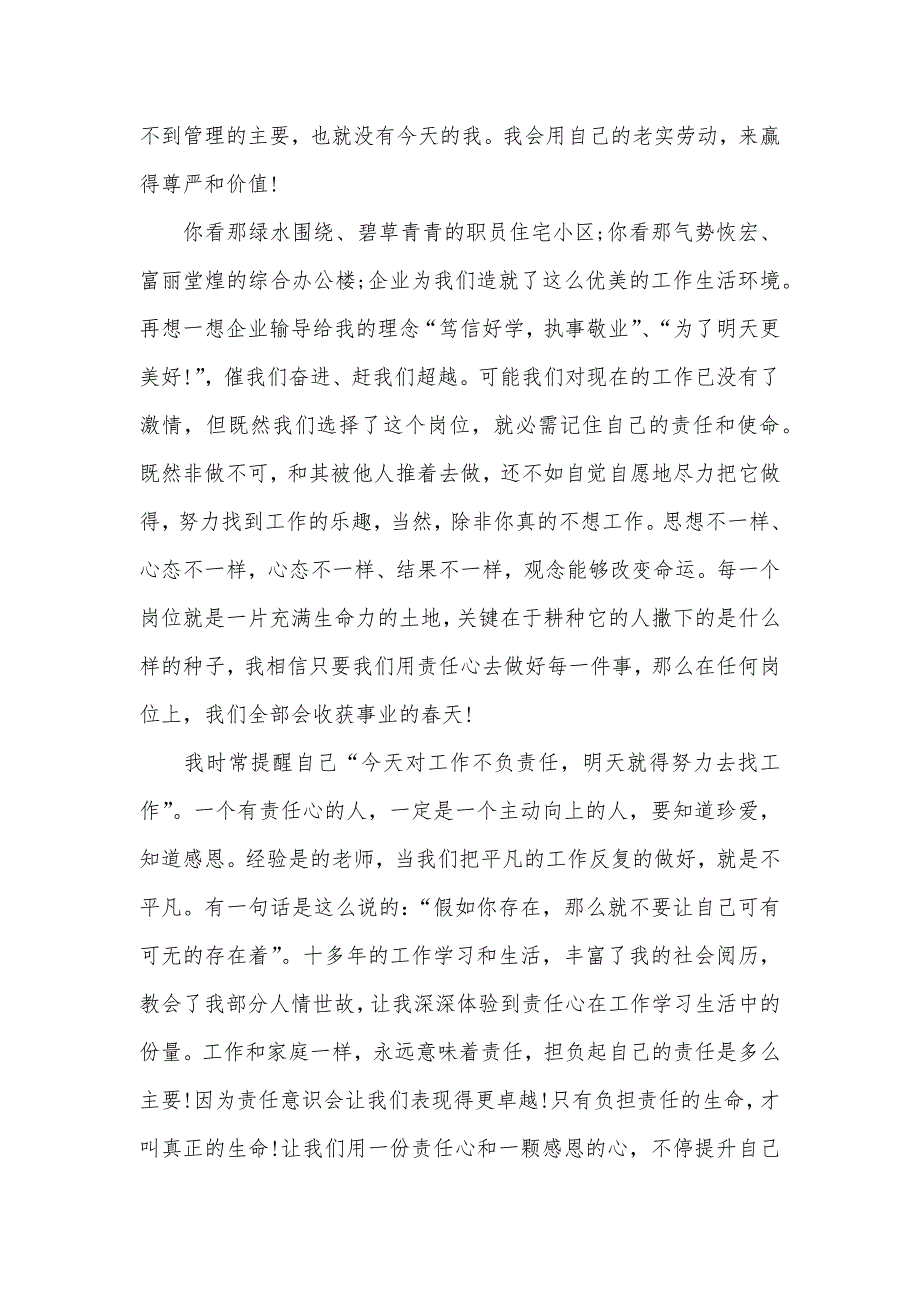 不到管理的主要，也就没有今天的我。我会用自己的老实劳动，来赢
得尊严和价值!
你看那绿水围绕、碧草青青的职员住宅小区;你看那气势恢宏、
富丽堂煌的综合办公楼;企业为我们造就了这么优美的工作生活环境。
再想一想企业输导给我的理念“笃信好学，执事敬业”、“为了明天更
美好!”，催我们奋进、赶我们超越。可能我们对现在的工作已没有了
激情，但既然我们选择了这个岗位，就必需记住自己的责任和使命。
既然非做不可，和其被他人推着去做，还不如自觉自愿地尽力把它做
得，努力找到工作的乐趣，当然，除非你真的不想工作。思想不一样、
心态不一样，心态不一样、结果不一样，观念能够改变命运。每一个
岗位就是一片充满生命力的土地，关键在于耕种它的人撒下的是什么
样的种子，我相信只要我们用责任心去做好每一件事，那么在任何岗
位上，我们全部会收获事业的春天!
我时常提醒自己“今天对工作不负责任，明天就得努力去找工
作”。一个有责任心的人，一定是一个主动向上的人，要知道珍爱，
知道感恩。经验是的老师，当我们把平凡的工作反复的做好，就是不
平凡。有一句话是这么说的：“假如你存在，那么就不要让自己可有
可无的存在着”。十多年的工作学习和生活，丰富了我的社会阅历，
教会了我部分人情世故，让我深深体验到责任心在工作学习生活中的
份量。工作和家庭一样，永远意味着责任，担负起自己的责任是多么
主要!因为责任意识会让我们表现得更卓越!只有负担责任的生命，才
叫真正的生命!让我们用一份责任心和一颗感恩的心，不停提升自己